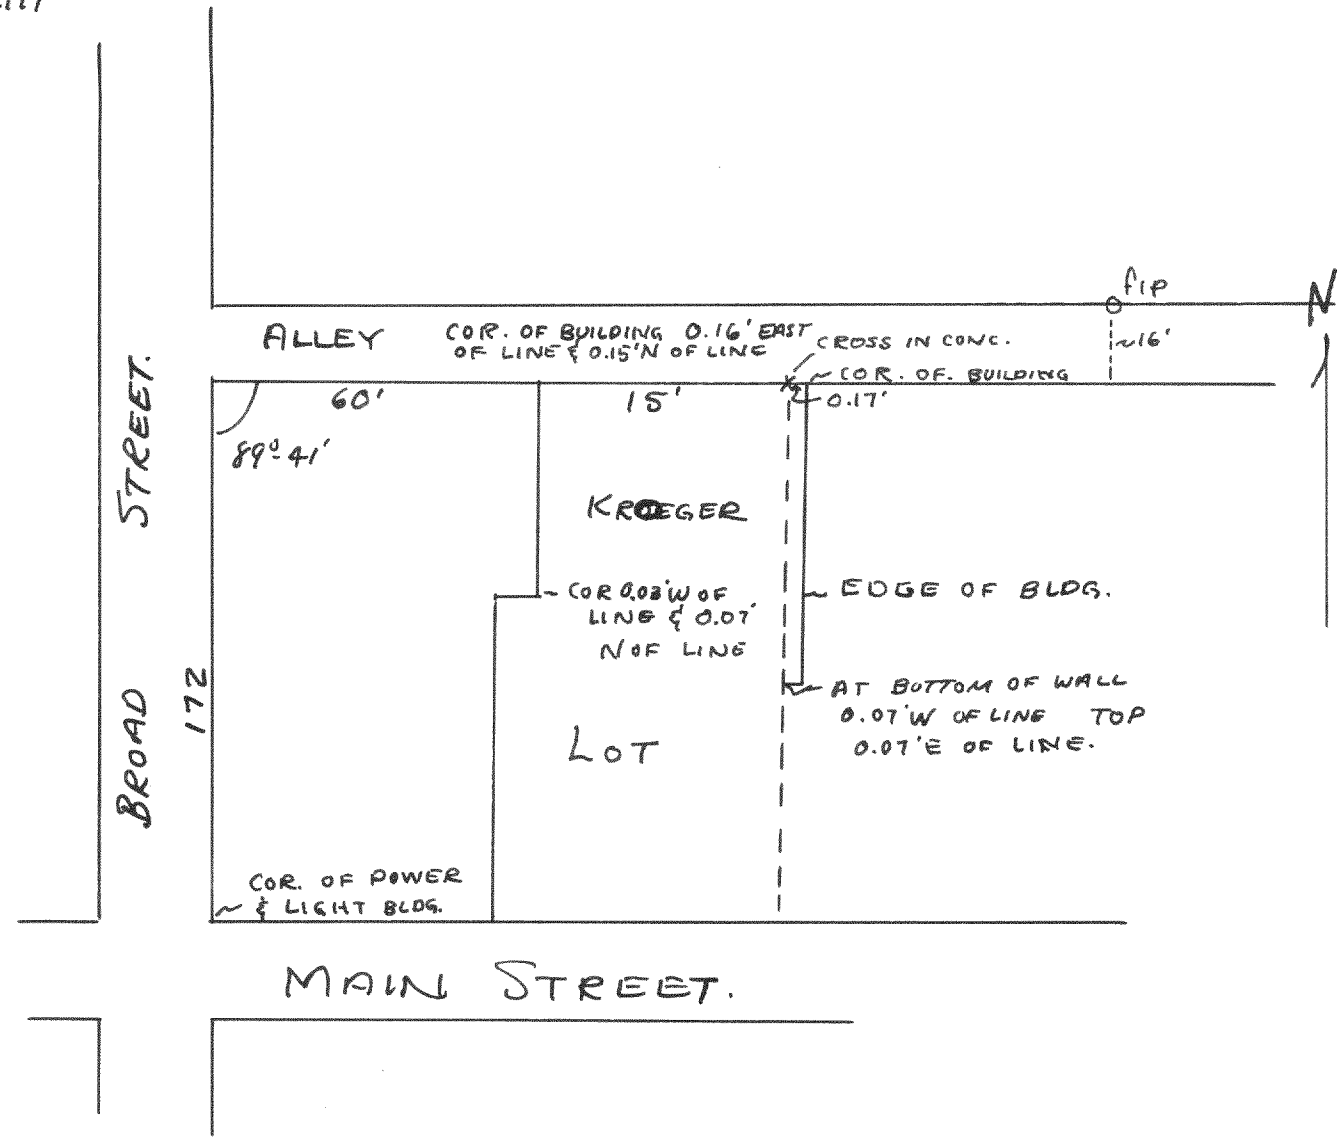 fIP
N
ALLEY
COR. OF BUILDING 0.16' EAST
OF LINE & 0.15'N OF LINE
CROSS IN CONC.
~16'
COR. OF. BUILDING
60'
15'
0.17'
89°-41'
KROEGER
BROAD STREET.
172
COR 0.03'W OF
LINE & 0.07'
N OF LINE
EDGE OF BLDG.
AT BOTTOM OF WALL
0.07'W OF LINE TOP
0.07'E OF LINE.
LOT
COR. OF POWER
& LIGHT BLDG.
MAIN STREET.